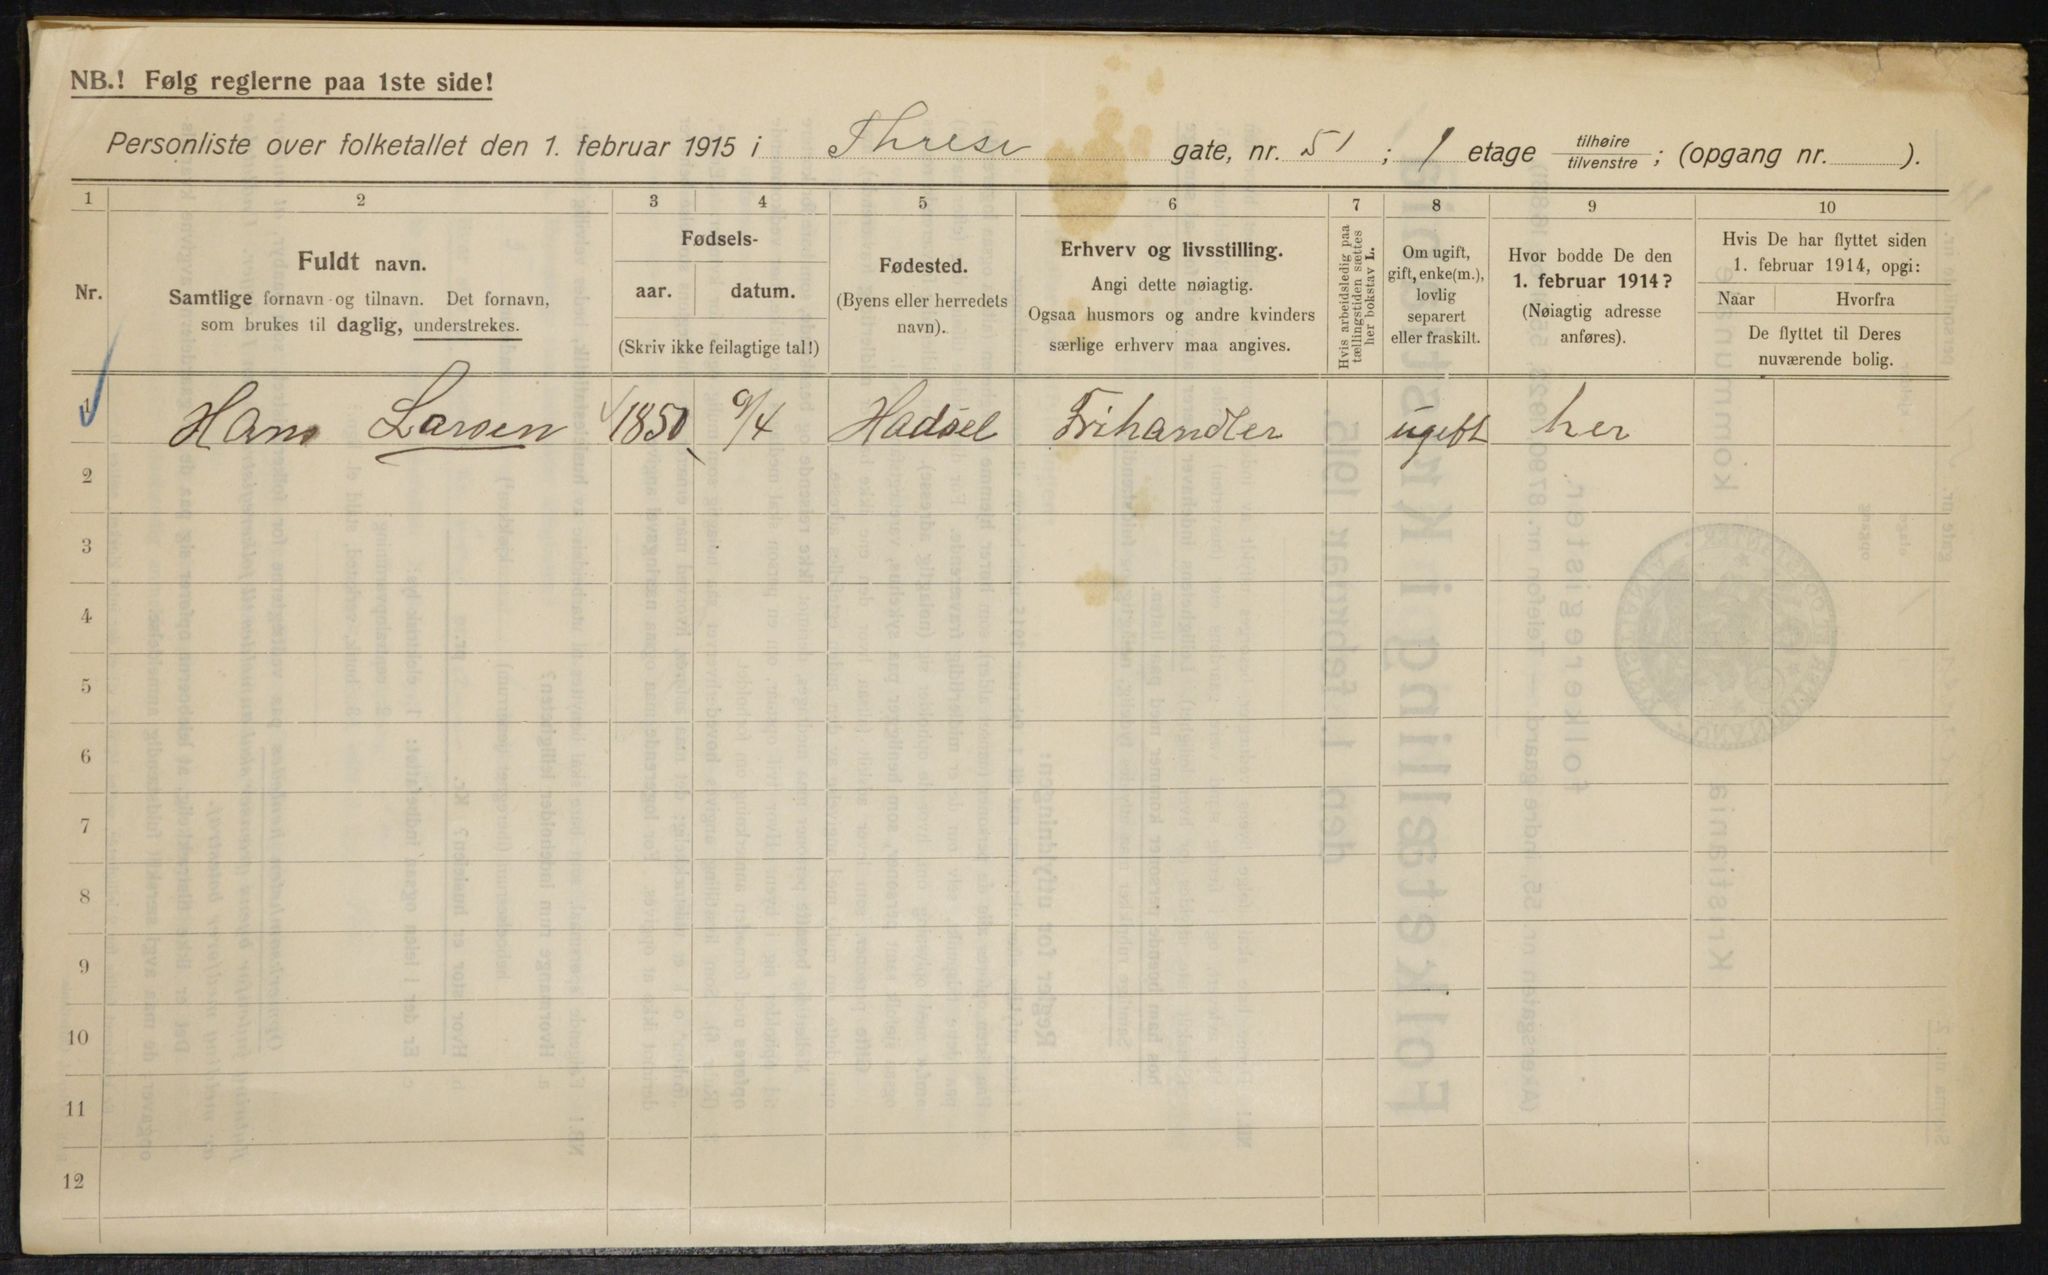 NB.! Følg reglerne paa 1ste side!
Personliste over folketallet den 1. februar 1915 i Threse gate, nr. 51 ; 1 etage tilhøire tilvenstre ; (opgang nr. ).
1 2 3 4 5 6 7 8 9 10
Nr.
Fuldt navn.
Samtlige fornavn og tilnavn. Det fornavn,
som brukes til daglig, understrekes.
Fødsels-
aar. datum.
(Skriv ikke feilagtige tal!)
Fødested.
(Byens eller herredets
navn).
Erhverv og livsstilling.
Angi dette nøiagtig.
Ogsaa husmors og andre kvinders
særlige erhverv maa angives.
Hvis arbeidsledig paa
tællingstiden sættes
her bokstav L.
Om ugift,
gift, enke(m.),
lovlig
separert
eller fraskilt.
Hvor bodde De den
1. februar 1914?
(Nøiagtig adresse
anføres).
Hvis De har flyttet siden
1. februar 1914, opgi:
Naar Hvorfra
De flyttet til Deres
nuværende bolig.
1 Hans Larsen 1850 9/4 Hadsel Frihandler ugift her
2
3
4
5
6
7
8
9
10
11
12